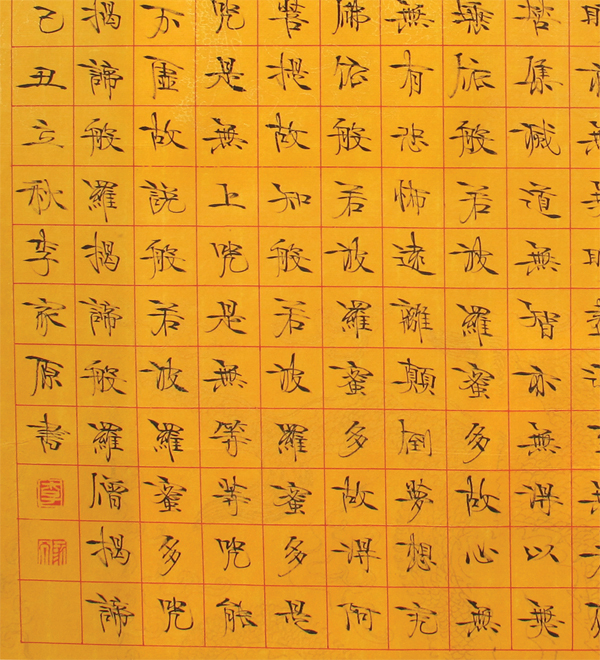 苦集滅道無智亦無得以無
埵依般若波羅蜜多故心無
無有恐怖遠離顛倒夢想究
佛依般若波羅蜜多故得阿
菩提故知般若波羅蜜多是
咒是無上咒是無等等咒能
不虛故說般若波羅蜜多咒
揭諦般羅揭諦般羅僧揭諦
己丑立秋李家原書